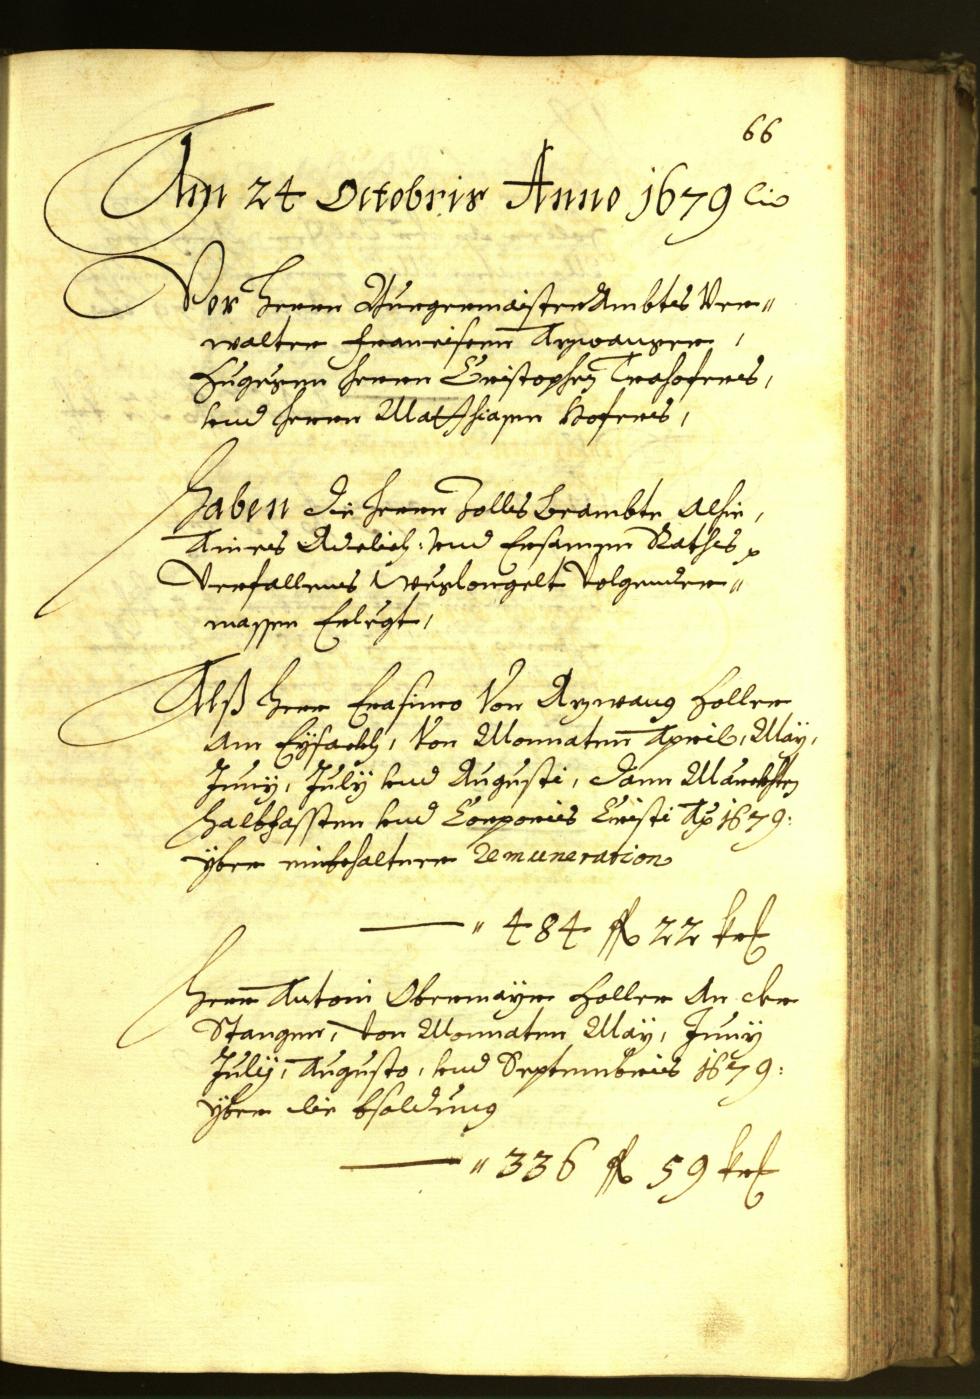 66
Am 24 Octobris Anno 1679
Vor Herrn Burgermaister Ambts Ver„
walter Franciscen Arzwanger,
Zugegen Herrn Cristophen Trahofers,
und Herrn Matthiasen Hofers,
Haben die Herrn Zolls Beambte Alhie,
Aines Adelich: und Ersamen Raths
Verfallenes Wexlongelt Volgender„
massen Erlegt,
Alß Herr Erasimo Von Arzwang Zoller
Am Eysackh, Von Monnaten April, May,
Juny, July und Augusti, dann Marckhten
Halbfassten und Corporis Cristi Ao 1679:
yber einbehaltner Remuneration
— „ 484 fl 22 kr
Herr Antoni Obermayr Zoller An der
Stangen, Von Monnaten May, Juny
July, Augusto, und Septembris 1679:
yber die bsoldung
— „ 336 fl 59 kr